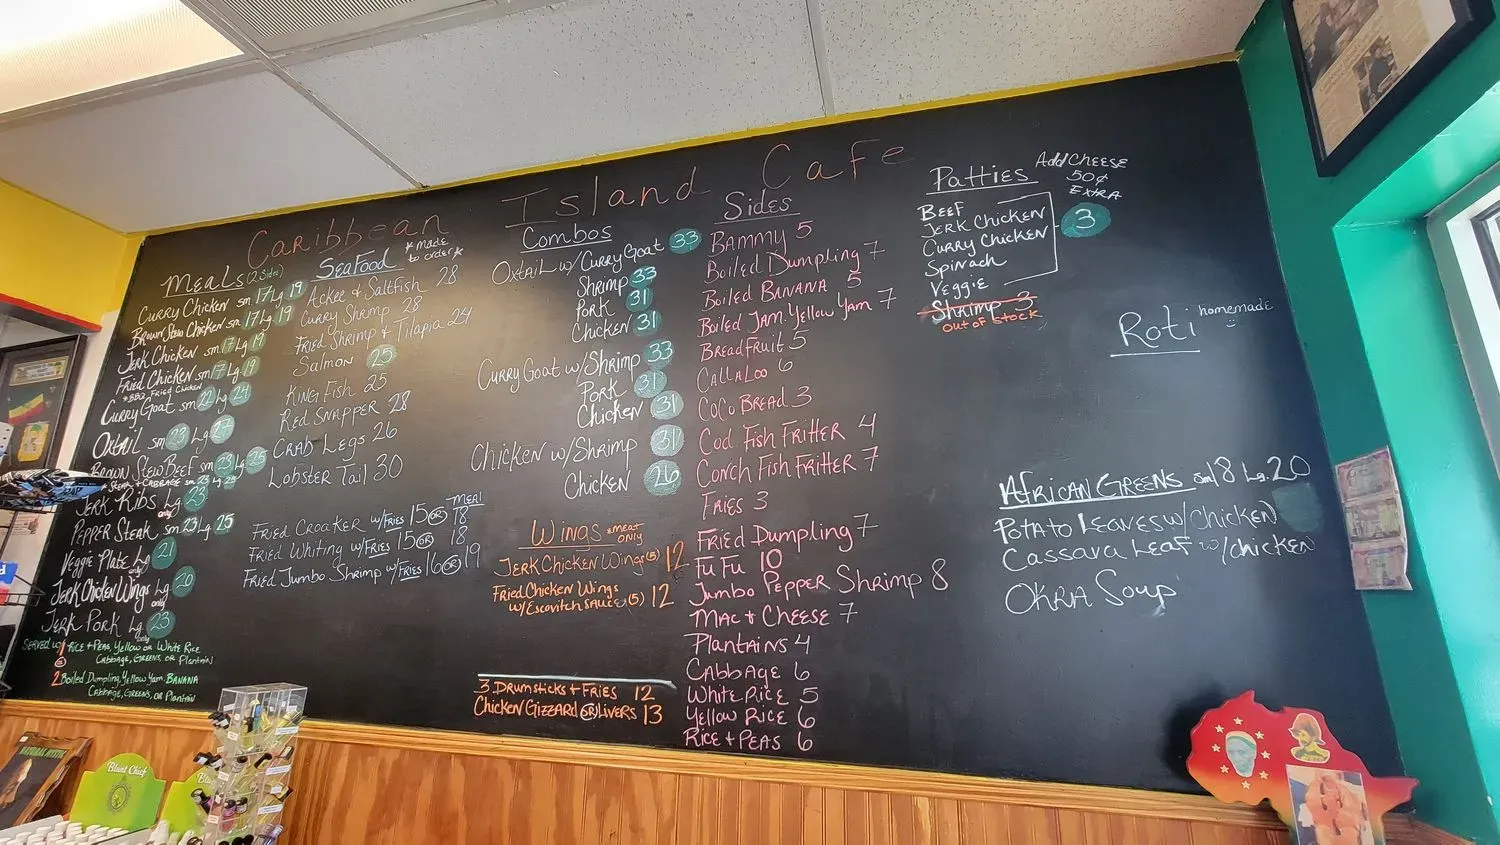 Caribbean Island Cafe
Meals (2 Sides)
Curry Chicken sm 17 Lg 19
Brown Stew Chicken sm 17 Lg 19
Jerk Chicken sm 17 Lg 19
Fried Chicken sm 17 Lg 19
*BBQ Fried Chicken
Curry Goat sm 22 Lg 24
Oxtail sm 23 Lg 27
Brown Stew Beef sm 23 Lg 25
*Steak + Cabbage sm 23 Lg 25
Jerk Ribs Lg only 23
Pepper Steak sm 23 Lg 25
Veggie Plate Lg only 21
Jerk Chicken Wings Lg only 20
Jerk Pork Lg only 23
Served w/
1 Rice + Peas, Yellow or White Rice
Cabbage, Greens, or Plantain
or
2 Boiled Dumpling, Yellow Yam, Banana
Cabbage, Greens, or Plantain
Seafood *made to order*
Ackee & Saltfish 28
Curry Shrimp 28
Fried Shrimp & Tilapia 24
Salmon 25
King Fish 25
Red Snapper 28
Crab Legs 26
Lobster Tail 30
Meal
Fried Croaker w/Fries 15 or 18
Fried Whiting w/Fries 15 or 18
Fried Jumbo Shrimp w/Fries 16 or 19
Combos
Oxtail w/Curry Goat 33
Shrimp 33
Pork 31
Chicken 31
Curry Goat w/Shrimp 33
Pork 31
Chicken 31
Chicken w/Shrimp 31
Chicken 26
Wings *meat only
Jerk Chicken Wings (5) 12
Fried Chicken Wings
w/Escovitch Sauce (5) 12
3 Drumsticks + Fries 12
Chicken Gizzard or Livers 13
Sides
Bammy 5
Boiled Dumpling 7
Boiled Banana 5
Boiled Jam. Yellow Yam 7
Breadfruit 5
Callaloo 6
Coco Bread 3
Cod Fish Fritter 4
Conch Fish Fritter 7
Fries 3
Fried Dumpling 7
Fu Fu 10
Jumbo Pepper Shrimp 8
Mac + Cheese 7
Plantains 4
Cabbage 6
White Rice 5
Yellow Rice 6
Rice + Peas 6
Patties
Add Cheese
50¢
Extra
Beef
Jerk Chicken
Curry Chicken
Spinach
Veggie
3
Shrimp 3
out of stock
Roti homemade
African Greens sm 18 Lg. 20
Potato Leaves w/Chicken
Cassava Leaf w/chicken
Okra Soup
Natural Mystic
Blunt Chief